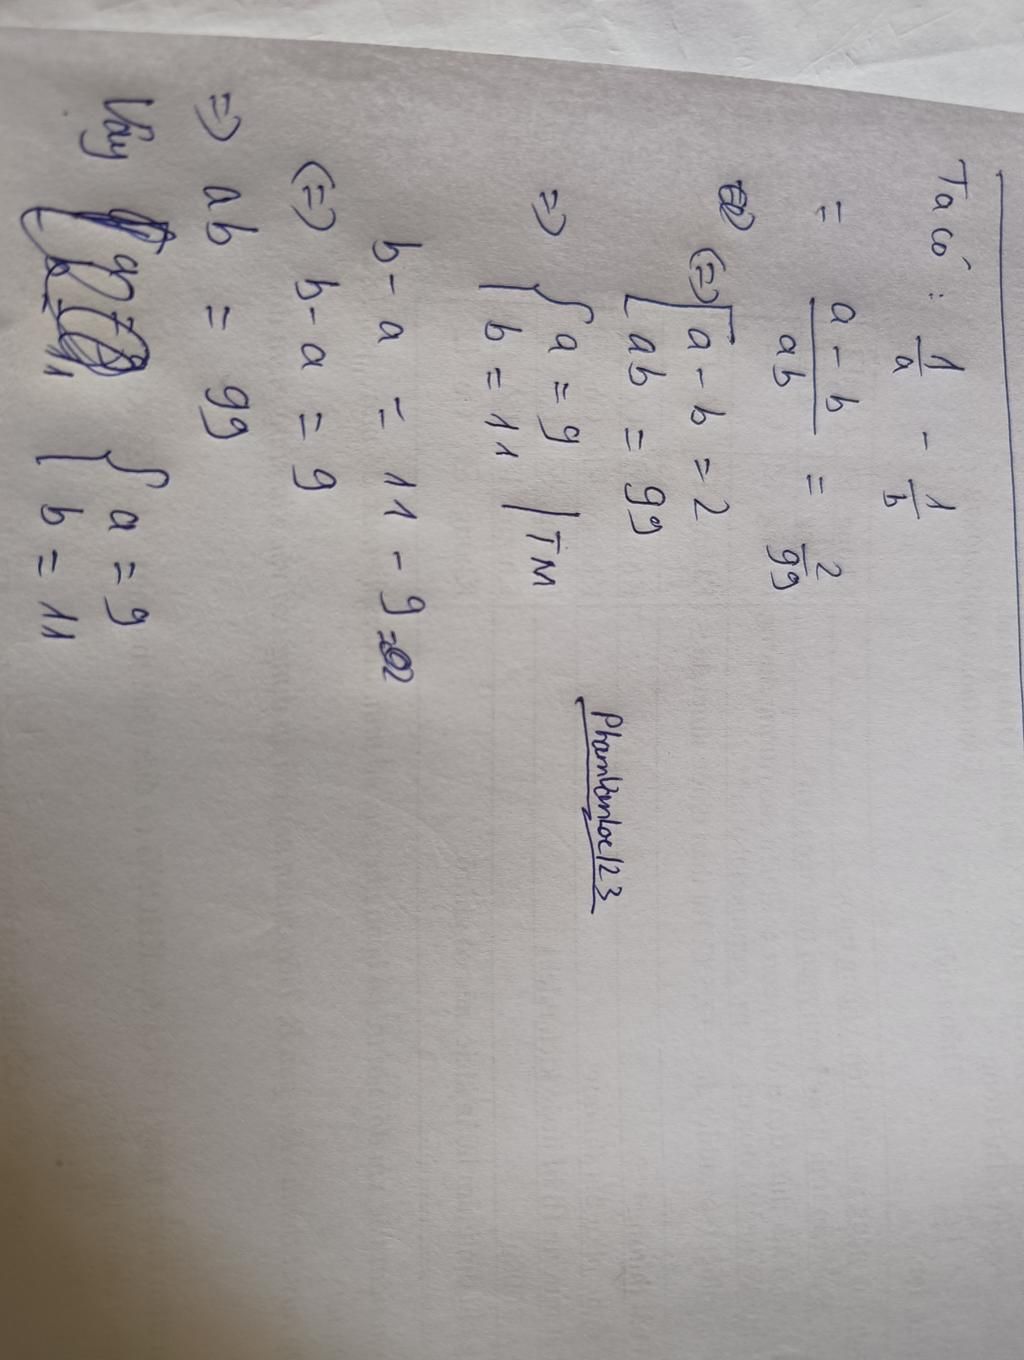 Ta có : 1/a - 1/b
= a - b / ab = 2/99
(=) [ a - b = 2
ab = 99
=) { a = 9
b = 11 | TM
b - a = 11 - 9 = 2
(=) b - a = 9
=) ab = 99
Vậy { a = 9
b = 11
Phamvanloc123